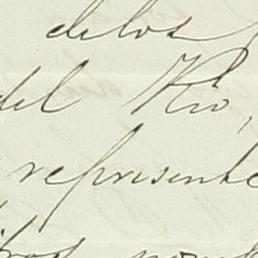 delos
del Rio,
represente